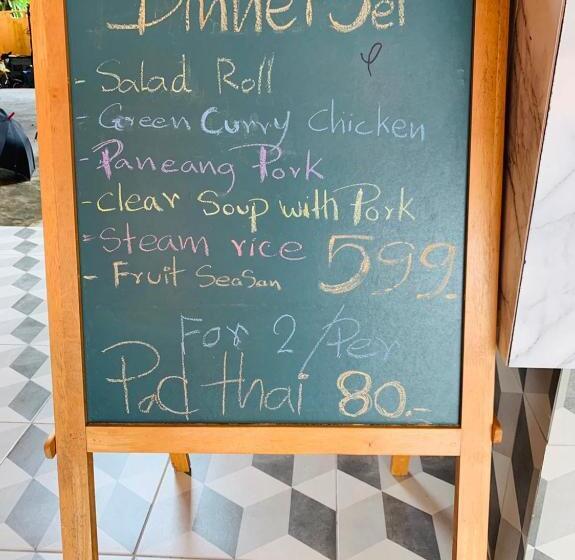 Dinner Set
- Salad Roll
- Green Curry Chicken
- Paneang Pork
- clear Soup with Pork
- Steam rice 599.
- Fruit SeaSan
For 2/Per
Pad thai 80.-